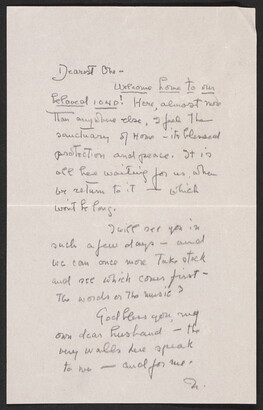 Dearest One -
Welcome home to our
beloved 1080! Here, almost more
than anywhere else, I feel the
sanctuary of Home - its blessed
protection and peace. It is
all here waiting for us, when
we return to it - which
won't be long.
I will see you in
such a few days - and
we can once more take stock
and see which comes first -
the words or the music?
God bless you, my
own dear husband - the
very walls here speak
to me - and for me.